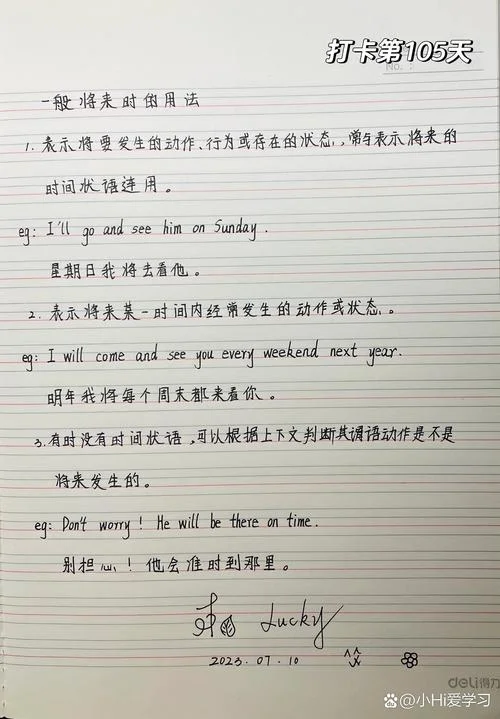 打卡第105天
No.:
一般将来时的用法
1. 表示将要发生的动作、行为或存在的状态，常与表示将来的
时间状语连用。
eg: I'll go and see him on Sunday.
星期日我将去看他。
2. 表示将来某一时间内经常发生的动作或状态。
eg: I will come and see you every weekend next year.
明年我将每个周末都来看你。
3. 有时没有时间状语，可以根据上下文判断其谓语动作是不是
将来发生的。
eg: Don't worry! He will be there on time.
别担心！他会准时到那里。
Lucky
2023.07.10
deli得力
@小Hi爱学习